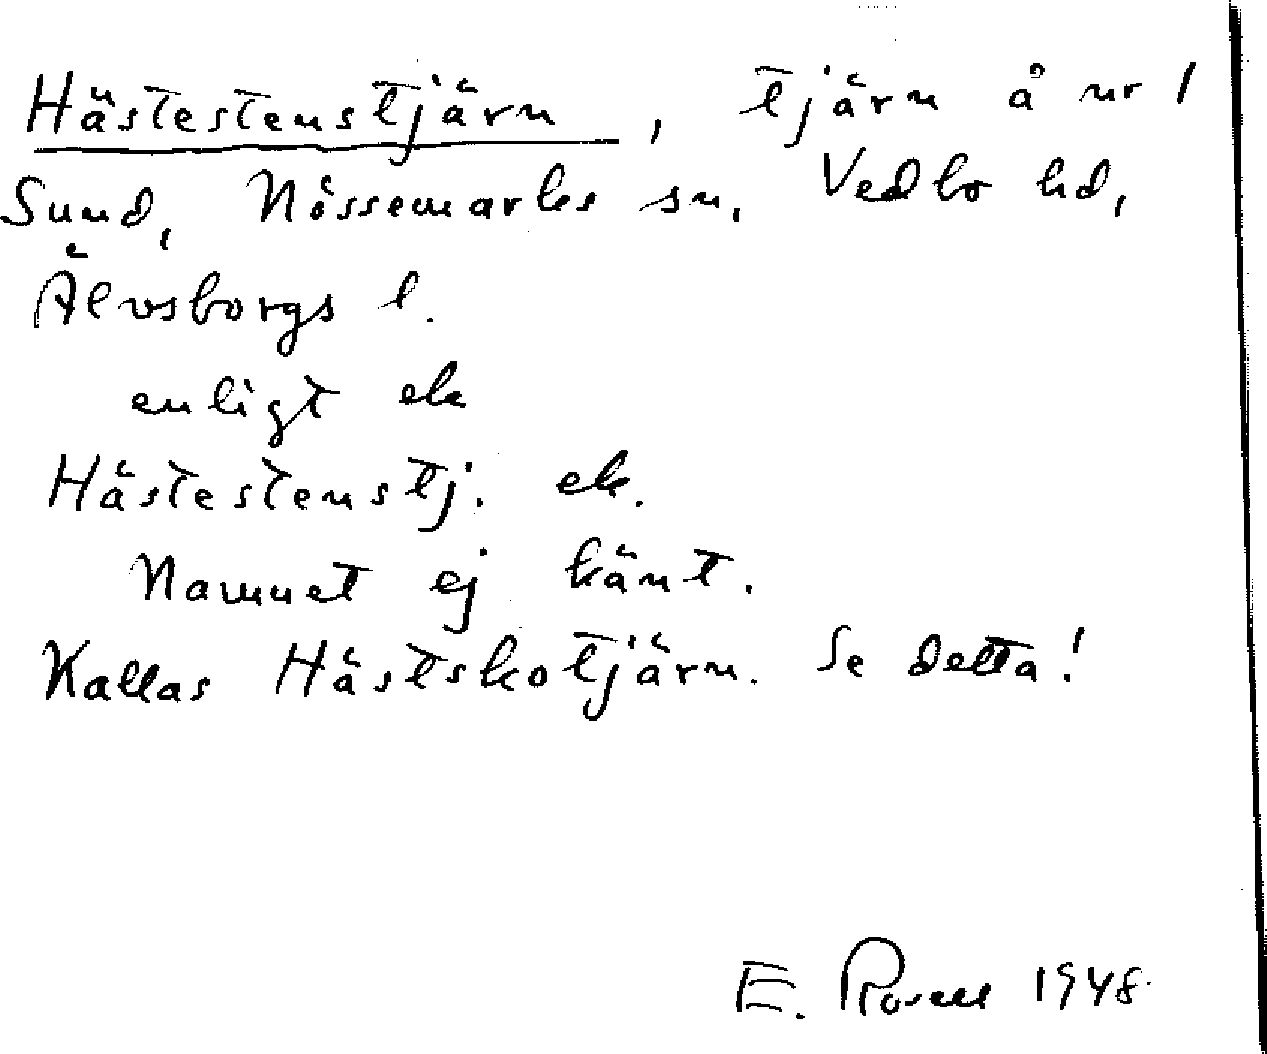 Hästestenstjärn, tjärn å nr 1
Sund, Nössemarks sn, Vedbo hd,
Älvsborgs l.
enligt ek
Hästestenstj. ek.
Namnet ej känt.
Kallas Hästskotjärn. Se detta!
E. Rosell 1948